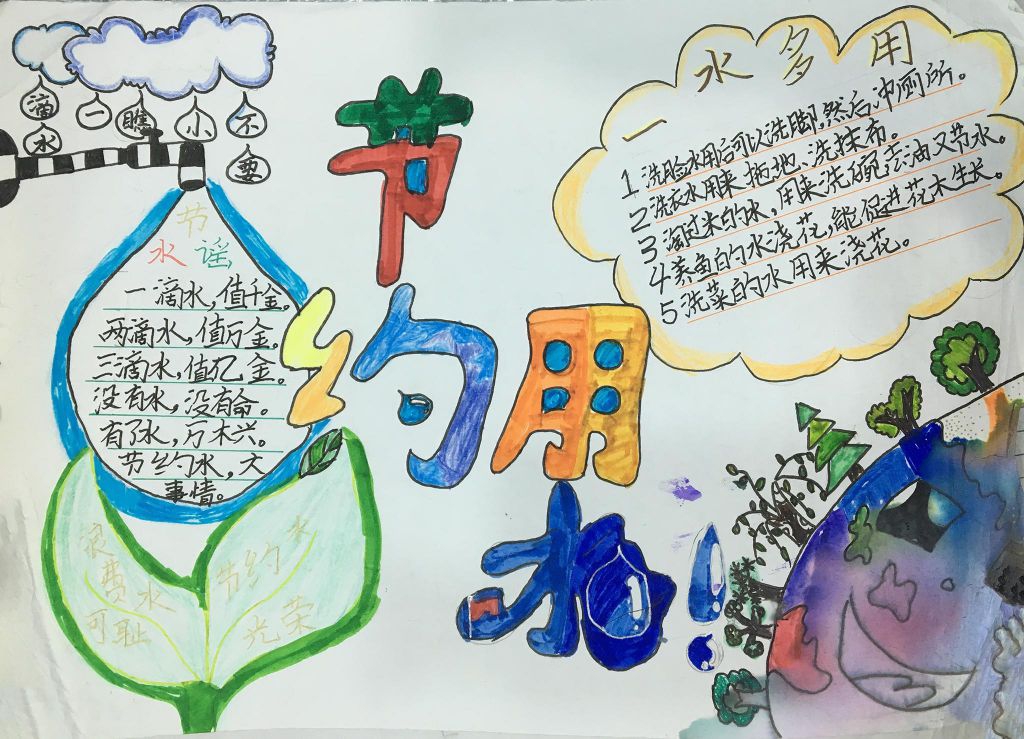 不要小瞧一滴水
节约用水!
节
水谣
一滴水,值千金。
两滴水,值万金。
三滴水,值亿金。
没有水,没有命。
有了水,万木兴。
节约水,大
事情。
浪
费水
可耻
节约水
光荣
一水多用
1 洗脸水用后可以洗脚,然后冲厕所。
2 洗衣水用来拖地、洗抹布。
3 淘过米的水,用来洗碗去油又节水。
4 养鱼的水浇花,能促进花木生长。
5 洗菜的水用来浇花。